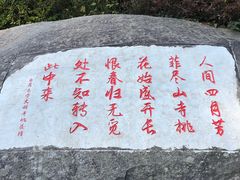 人间四月芳
菲尽山寺桃
花始盛开长
恨春归无觅
处不知转入
此中来